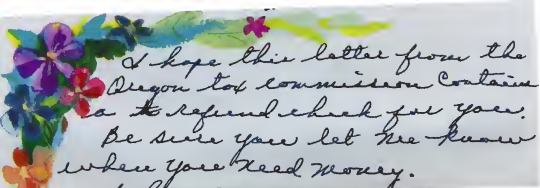 I hope this letter from the
Oregon tax commission contains
a refund check for you.
Be sure you let me know
when you need money.